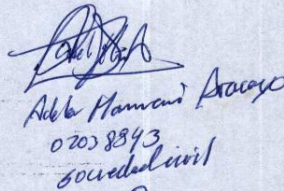 Adela Mamani Aracayo
02038893
sociedad civil